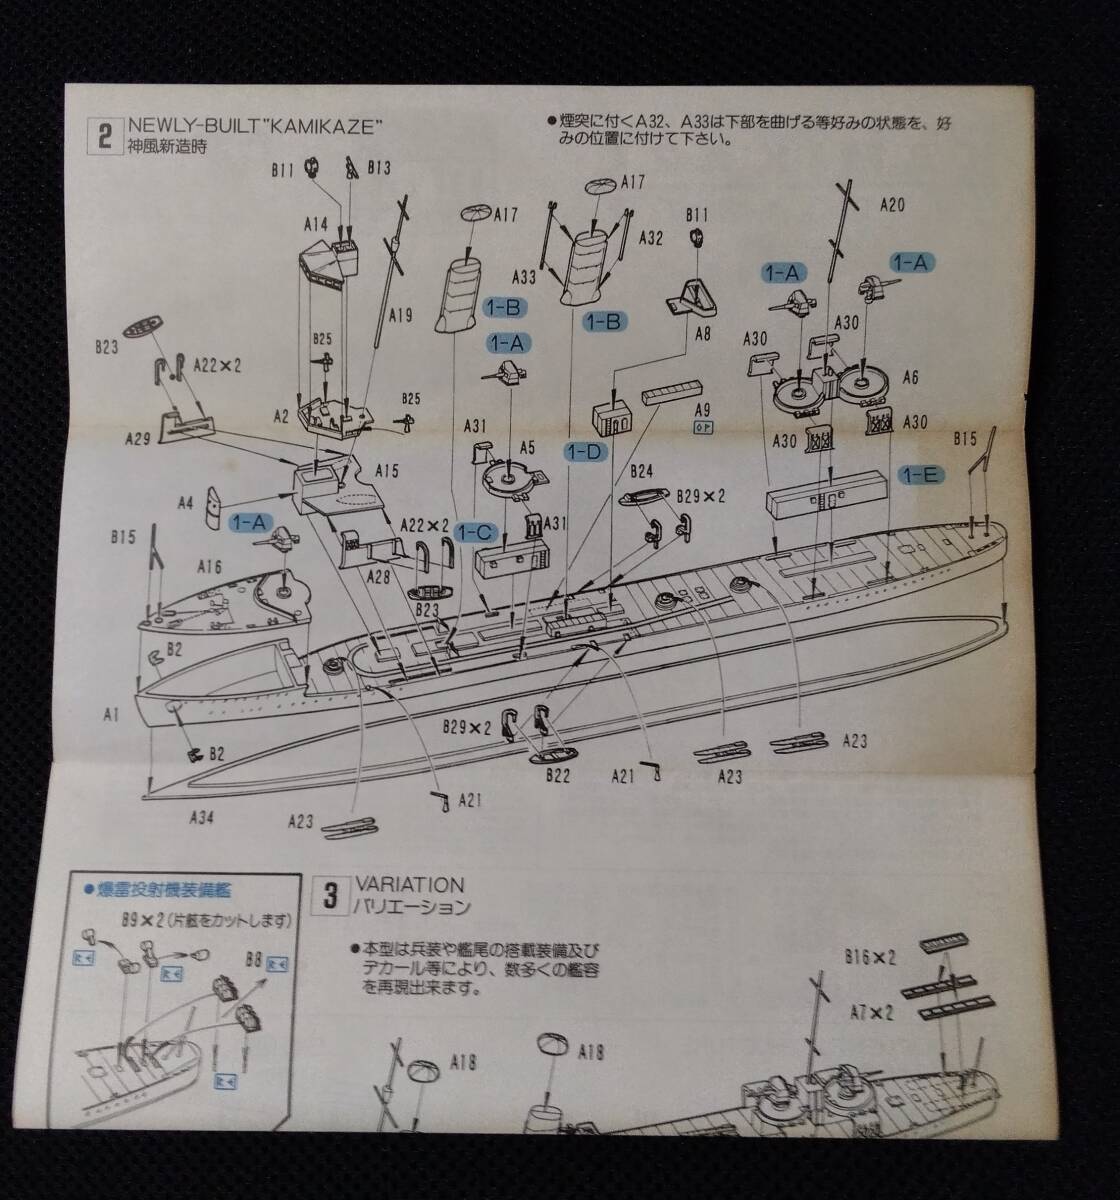 2 NEWLY-BUILT"KAMIKAZE"
神風新造時
●煙突に付くA32、A33は下部を曲げる等好みの状態を、好
みの位置に付けて下さい。
B11
B13
A14
A19
A17
A17
A33
A32
B11
A20
1-A
1-A
1-B
1-B
1-A
A8
A30
A30
A6
B23
A22×2
B25
B25
A2
A29
A15
A31
A5
1-D
A9
A30
A30
B15
1-E
B24
B29×2
A4
1-A
A22×2
1-C
A31
B15
A16
A28
B23
B2
A1
B2
B29×2
B22
A21
A23
A23
A21
A23
A34
●爆雷投射機装備艦
B9×2(片舷をカットします)
B8
3 VARIATION
バリエーション
●本型は兵装や艦尾の搭載装備及び
デカール等により、数多くの艦容
を再現出来ます。
B16×2
A7×2
A18
A18